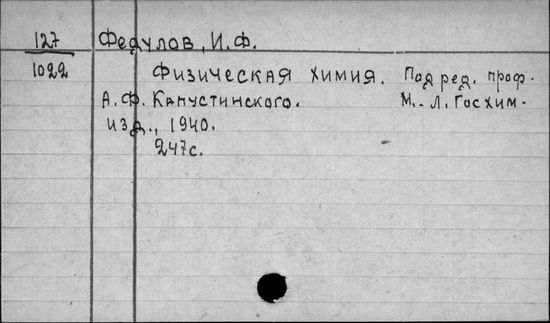 127 Федулов, И.Ф.
1022 Физическая химия. Под ред. проф.
А.Ф. Капустинского. М.-Л. Госхим-
изд., 1940.
247с.